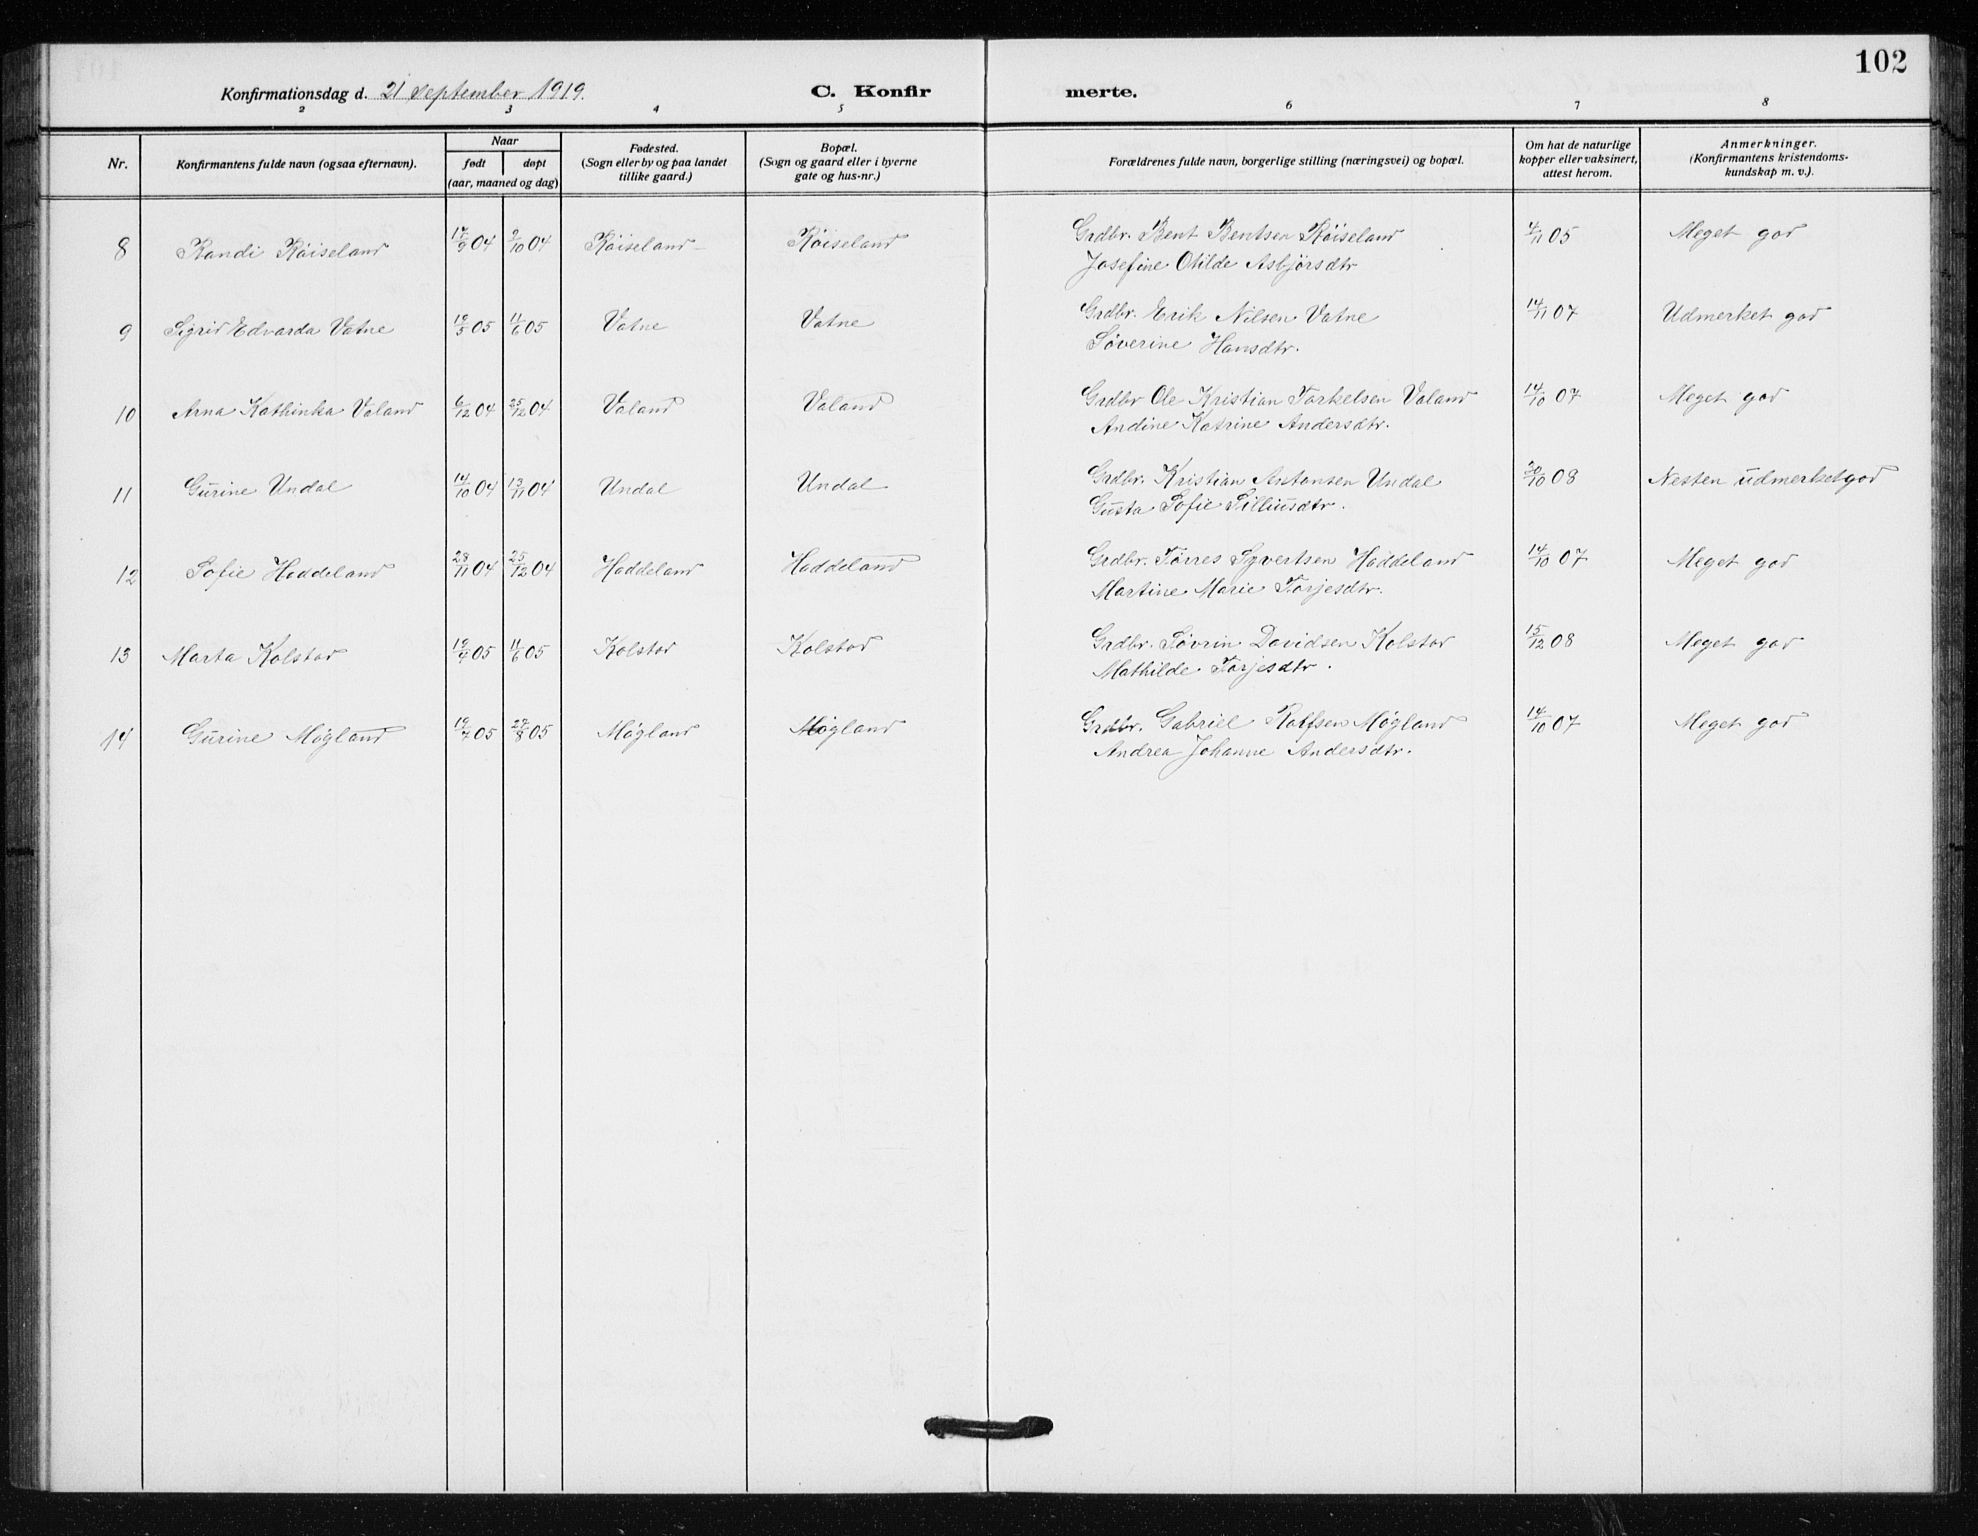 102
Konfirmationsdag d. 21 September 1919. C. Konfir merte.
2 3 4 5 6 7 8
Nr. Konfirmantens fulde navn (ogsaa efternavn). Naar født døpt (aar, maaned og dag) Fødested. (Sogn eller by og paa landet tillike gaard.) Bopæl. (Sogn og gaard eller i byerne gate og hus-nr.) Forældrenes fulde navn, borgerlige stilling (næringsvei) og bopæl. Om hat de naturlige kopper eller vaksinert, attest herom. Anmerkninger. (Konfirmantens kristendoms-kundskap m. v.).
8 Randi Røiseland 17/9 04 2/10 04 Røiseland Røiseland Grdbr. Bent Bentsen Røiseland 4/11 05 Meget god
Josefine Otilde Asbjørsdtr
9 Sigrid Edvarda Vatne 19/5 05 11/6 05 Vatne Vatne Grdbr. Erik Nilsen Vatne 14/11 07 Udmerket god
Søverine Hansdtr.
10 Arna Kathinka Valand 6/12 04 25/12 04 Valand Valand Grdbr Ole Kristian Torkelsen Valand 14/10 07 Meget god
Andine Katrine Andersdtr.
11 Gurine Undal 14/10 04 13/11 04 Undal Undal Grdbr. Kristian Antonsen Undal 20/10 08 Nesten udmerket god
Gusta Sofie Silliusdtr.
12 Sofie Haddeland 28/11 04 25/12 04 Haddeland Haddeland Grdbr. Tørres Syvertsen Haddeland 14/10 07 Meget god
Martine Marie Torjesdtr.
13 Marta Kolstad 19/4 05 11/6 05 Kolstad Kolstad Grdbr. Søvrin Davidsen Kolstad 15/12 08 Meget god
Mathilde Torjesdtr.
14 Gurine Møgland 19/7 05 27/8 05 Møgland Møgland Grdbr. Gabriel Rolfsen Møgland 14/10 07 Meget god
Andrea Johanne Andersdtr.